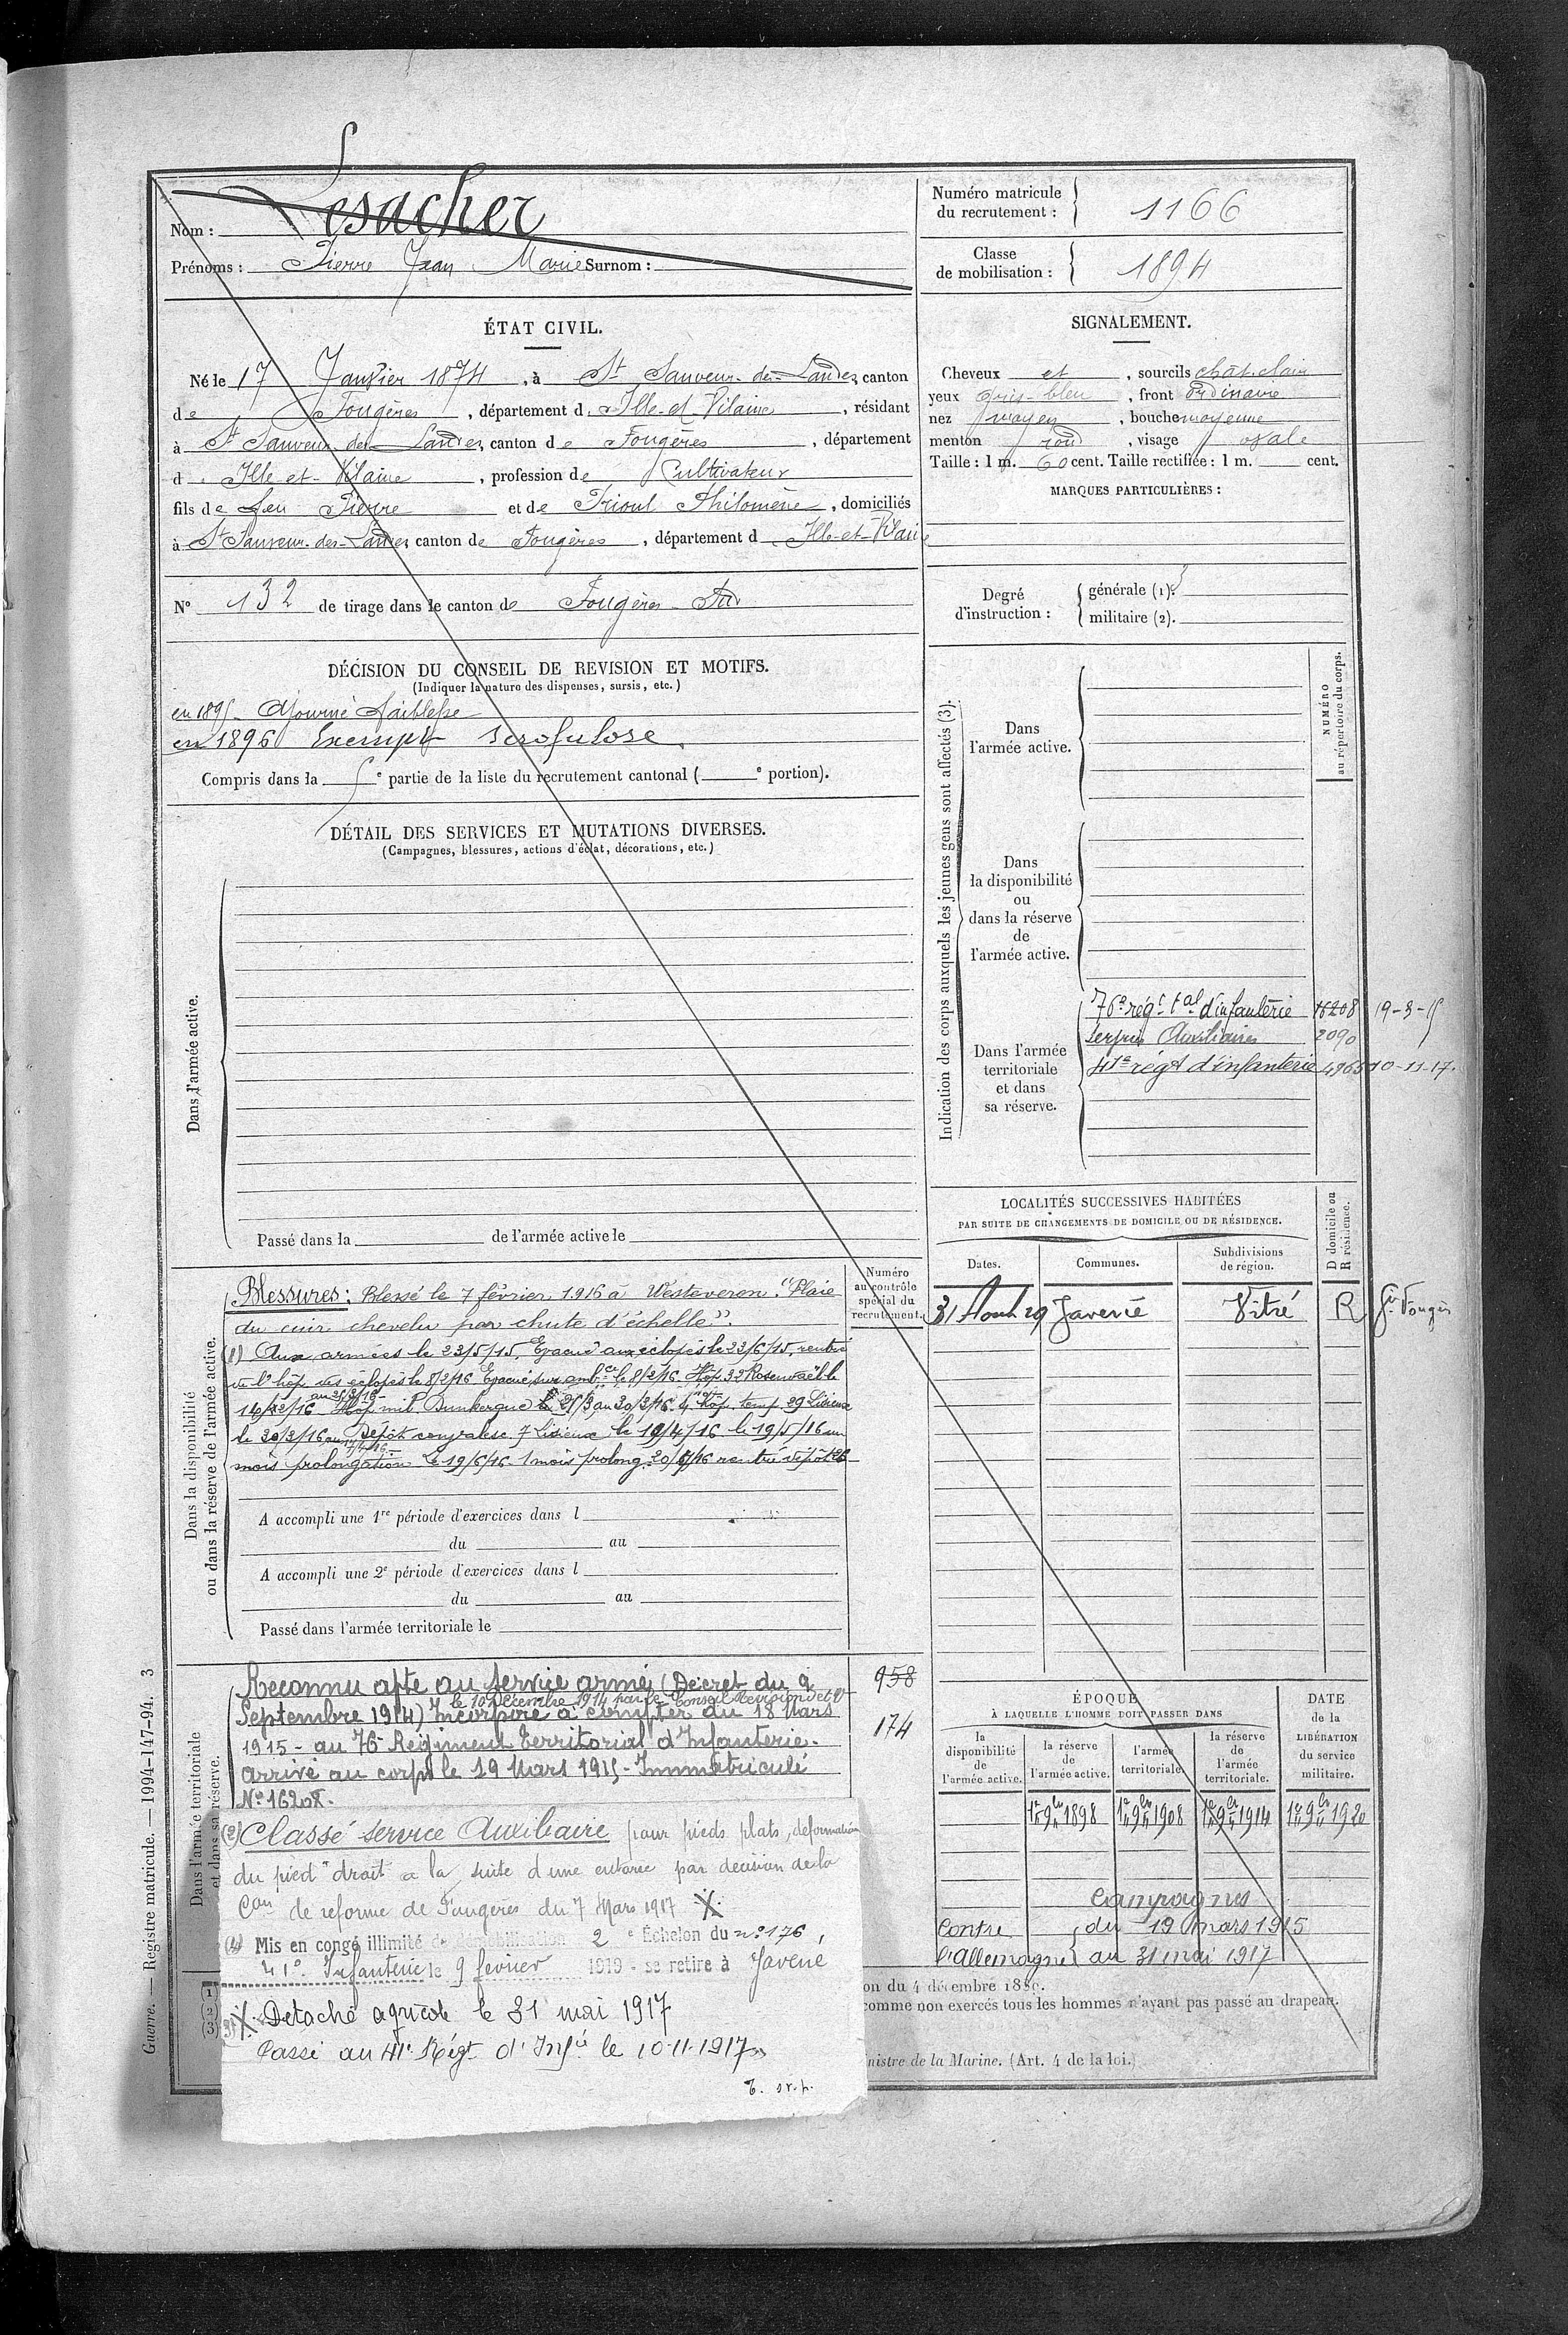 Nom : Lesacher
Prénoms : Pierre Jean Marie Surnom :
Numéro matricule du recrutement : 1166
Classe de mobilisation : 1894
ÉTAT CIVIL.
Né le 17 Janvier 1874, à St Sauveur-des-Landes, canton
de Fougères, département d. Ille-et-Vilaine, résidant
à St Sauveur des Landes, canton de Fougères, département
d. Ille-et-Vilaine, profession de Cultivateur
fils de feu Pierre et de Trioul Philomène, domiciliés
à St Sauveur-des-Landes canton de Fougères, département d Ille-et-Vilaine
N° 132 de tirage dans le canton de Fougères-Sud
SIGNALEMENT.
Cheveux et, sourcils chât. clair
yeux gris-bleu, front ordinaire
nez moyen, bouche moyenne
menton rond, visage ovale
Taille : 1 m. 60 cent. Taille rectifiée : 1 m. cent.
MARQUES PARTICULIÈRES :
Degré d'instruction : générale (1). 3
militaire (2).
DÉCISION DU CONSEIL DE REVISION ET MOTIFS.
(Indiquer la nature des dispenses, sursis, etc.)
en 1895 Ajourné faiblesse
en 1896 Exempt scrofulose.
Compris dans la e partie de la liste du recrutement cantonal ( e portion).
DÉTAIL DES SERVICES ET MUTATIONS DIVERSES.
(Campagnes, blessures, actions d'éclat, décorations, etc.)
Dans l'armée active.
Passé dans la de l'armée active le
Indication des corps auxquels les jeunes gens sont affectés (3).
NUMÉRO
au répertoire du corps.
Dans
l'armée active.
Dans
la disponibilité
ou
dans la réserve
de
l'armée active.
Dans l'armée
territoriale
et dans
sa réserve.
76e régt tal d'infanterie 16208 19-3-15
Services Auxiliaires 2090
41e régt d'infanterie 4965 10-11-17.
LOCALITÉS SUCCESSIVES HABITÉES
PAR SUITE DE CHANGEMENTS DE DOMICILE OU DE RÉSIDENCE.
Dates. Communes. Subdivisions de région. D domicile ou R résidence.
31 Août 29 Javené Vitré R Fougères
Numéro
au contrôle
spécial du
recrutement.
Dans la disponibilité
ou dans la réserve de l'armée active.
Blessures : Blessé le 7 février 1916 à Westeveren. "Plaie
du cuir chevelu par chute d'échelle".
(1) Aux armées le 23/5/15, Evacué aux éclopés le 23/6/15, rentré
de l'hôp. des éclopés le 8/2/16 Evacué sur ambce le 8/2/16 Hôp 32 Rosendaël le
14/2/16 Hôp mil. Dunkerque le 21/3 au 30/3/16 Hôp temp. 29 Lisieux
le 30/3/16 au 17/4/16 Dépôt convalesc. 7 Lisieux le 19/4/16 le 19/5/16 un
mois prolongation le 19/6/16 1 mois prolong. 20/7/16 rentré dépôt
A accompli une 1re période d'exercices dans l
du au
A accompli une 2e période d'exercices dans l
du au
Passé dans l'armée territoriale le
Dans l'armée territoriale
et dans sa réserve.
Reconnu apte au service armé (Décret du 9
le 10 Décembre 1914 par le Conseil Revision
Septembre 1914) Incorporé à compter du 18 Mars
1915 - au 76e Régiment Territorial d'Infanterie.
arrivé au corps le 19 Mars 1915 - Immatriculé
N° 16208.
958
174
(2) Classé service Auxiliaire pour pieds plats, déformation
du pied droit à la suite d'une entorse par décision de la
Con de réforme de Fougères du 7 Mars 1917 X
(4) Mis en congé illimité de démobilisation 2e Échelon du n° 176,
41e Infanterie le 9 février 1919 - se retire à Javené
(3) X. Détaché agricole le 31 mai 1917
Passé au 41e Régt d'Infie le 10-11-1917
ÉPOQUE
À LAQUELLE L'HOMME DOIT PASSER DANS
DATE de la LIBÉRATION du service militaire.
la disponibilité de l'armée active. la réserve de l'armée active. l'armée territoriale. la réserve de l'armée territoriale.
1er 9bre 1898 1er 9bre 1908 1er 9bre 1914 1er 9bre 1920
Campagnes
Contre l'Allemagne du 19 mars 1915
au 31 mai 1917
(1)
(2)
(3)
on du 4 décembre 1889.
comme non exercés tous les hommes n'ayant pas passé au drapeau.
nistre de la Marine. (Art. 4 de la loi.)
Guerre. — Registre matricule. — 1994-147-94. 3